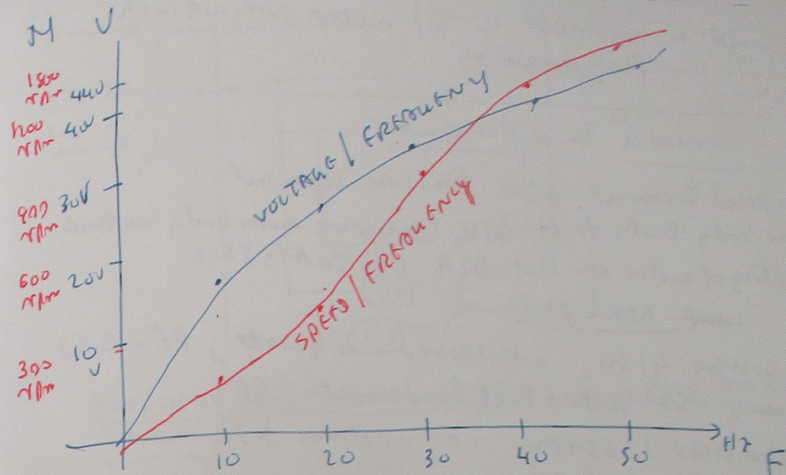 M V
1500
r/m 44V
1200
r/m 40V
900
r/m 30V
600
r/m 20V
300
r/m 10
V
VOLTAGE / FREQUENCY
SPEED / FREQUENCY
10 20 30 40 50 Hz F